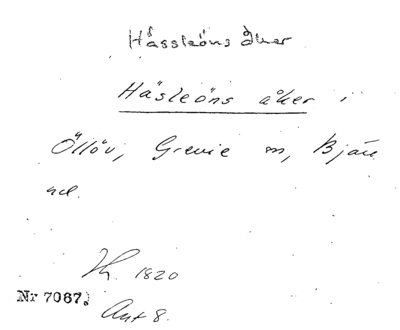 Hässleöns åker
Häsleöns åker i
Öllöv, Grevie sn, Bjäre
hd.
1820
Nr 7067.
Akt 8.